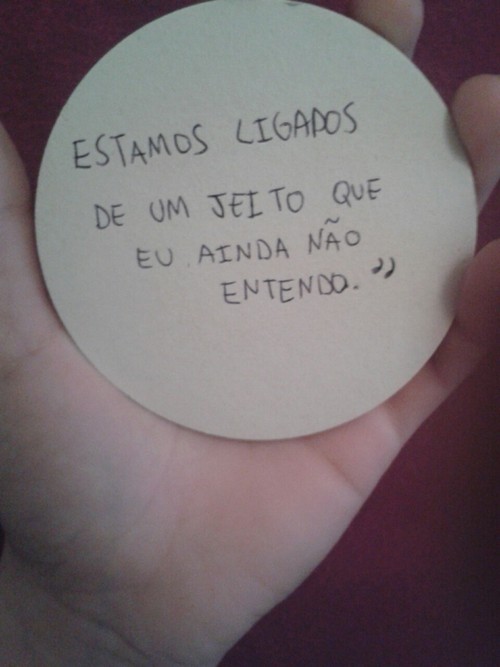 ESTAMOS LIGADOS
DE UM JEITO QUE
EU AINDA NÃO
ENTENDO.”